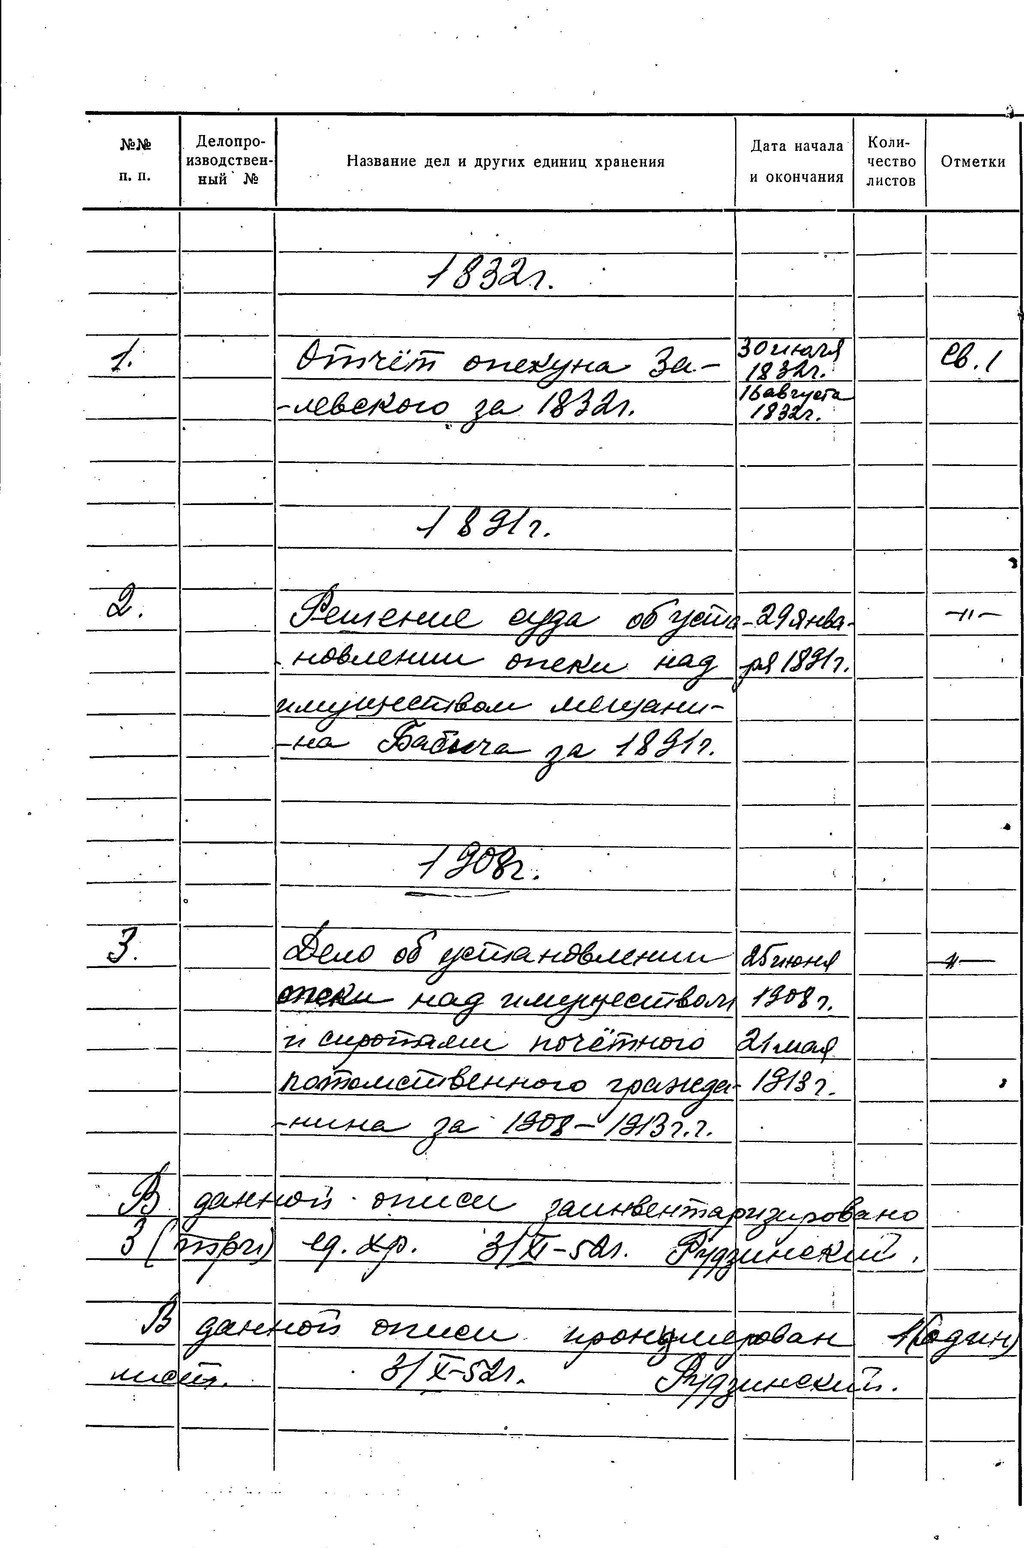 №№ п. п. Делопро-изводствен-ный № Название дел и других единиц хранения Дата начала и окончания Коли-чество листов Отметки
1832г.
1. Отчёт опекуна За- 30 июля 1832г. Св. 1
-левского за 1832г. 16 августа 1832г.
1891г.
2. Решение суда об уста- 29 янва- -"-
-новлении опеки над ря 1891г.
имуществом мещани-
-на Бабича за 1891г.
1908г.
3. Дело об установлении 25 июня -"-
опеки над имуществом 1908г.
и сиротами почётного 21 мая
потомственного гражда- 1913г.
-нина за 1908-1913г.г.
В данной описи заинвентаризировано
3 (три) ед. хр. 3/XI-52г. Рудзинский.
В данной описи пронумерован 1 (один)
лист. 3/X-52г. Рудзинский.